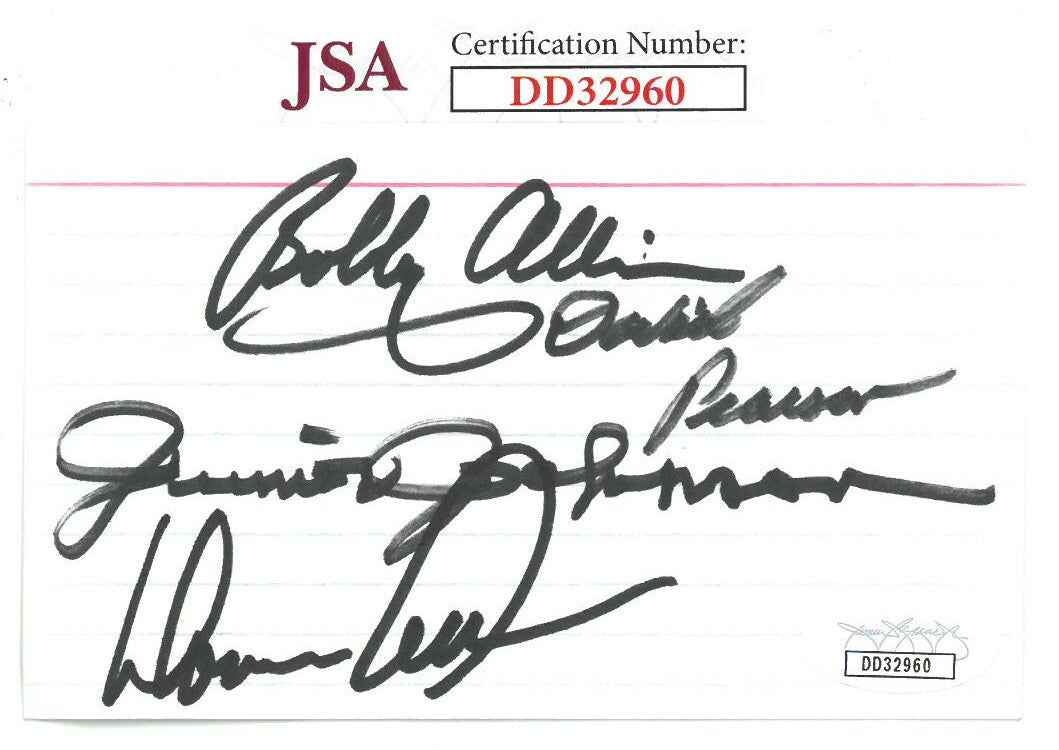 JSA
Certification Number:
DD32960
Bobby Allison
David
Pearson
Junior Johnson
DD32960